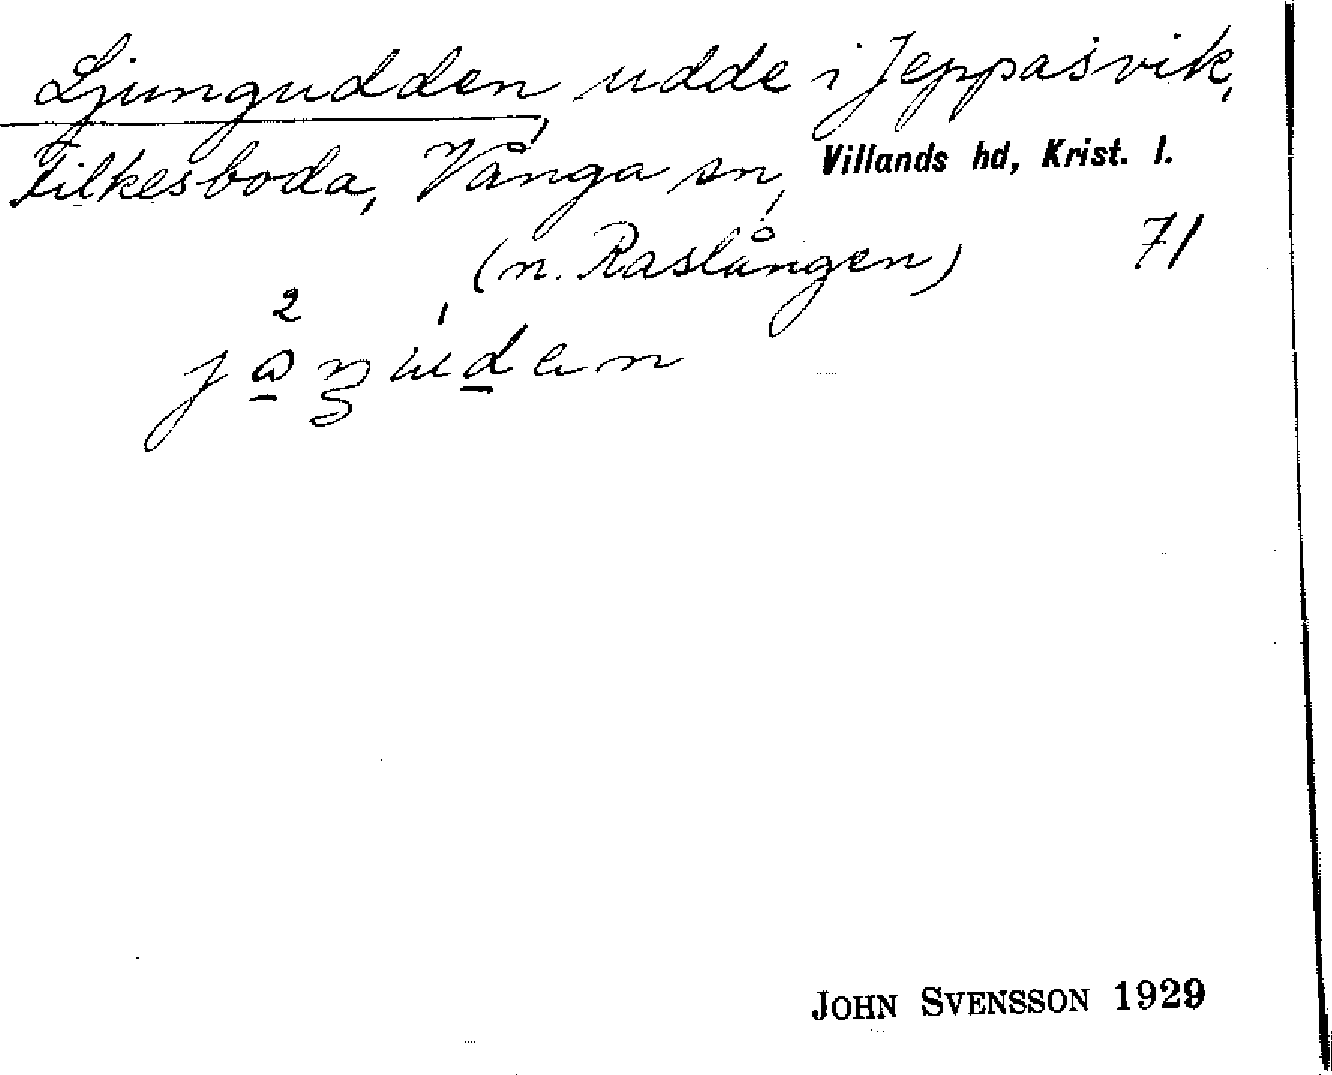 Ljungudden, udde i Jeppasvik,
Filkesboda, Vånga sn, Villands hd, Krist. l.
(n. Raslången) 71
JOHN SVENSSON 1929